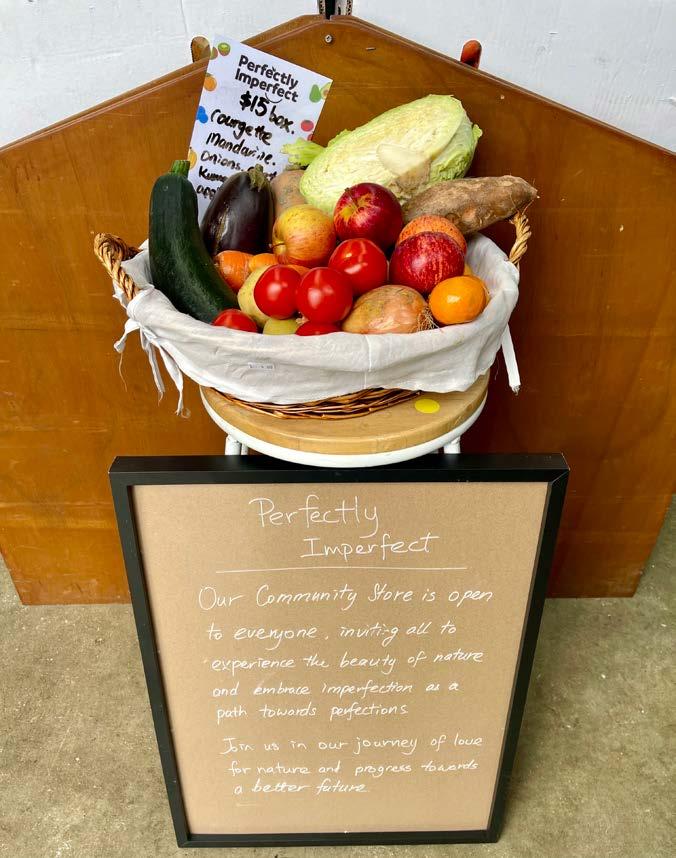 Perfectly
Imperfect
$15 box.
Courgette
Mandarine.
Onions,
Perfectly
Imperfect
Our Community Store is open
to everyone, inviting all to
experience the beauty of nature
and embrace imperfection as a
path towards perfections
Join us in our journey of love
for nature and progress towards
a better future.